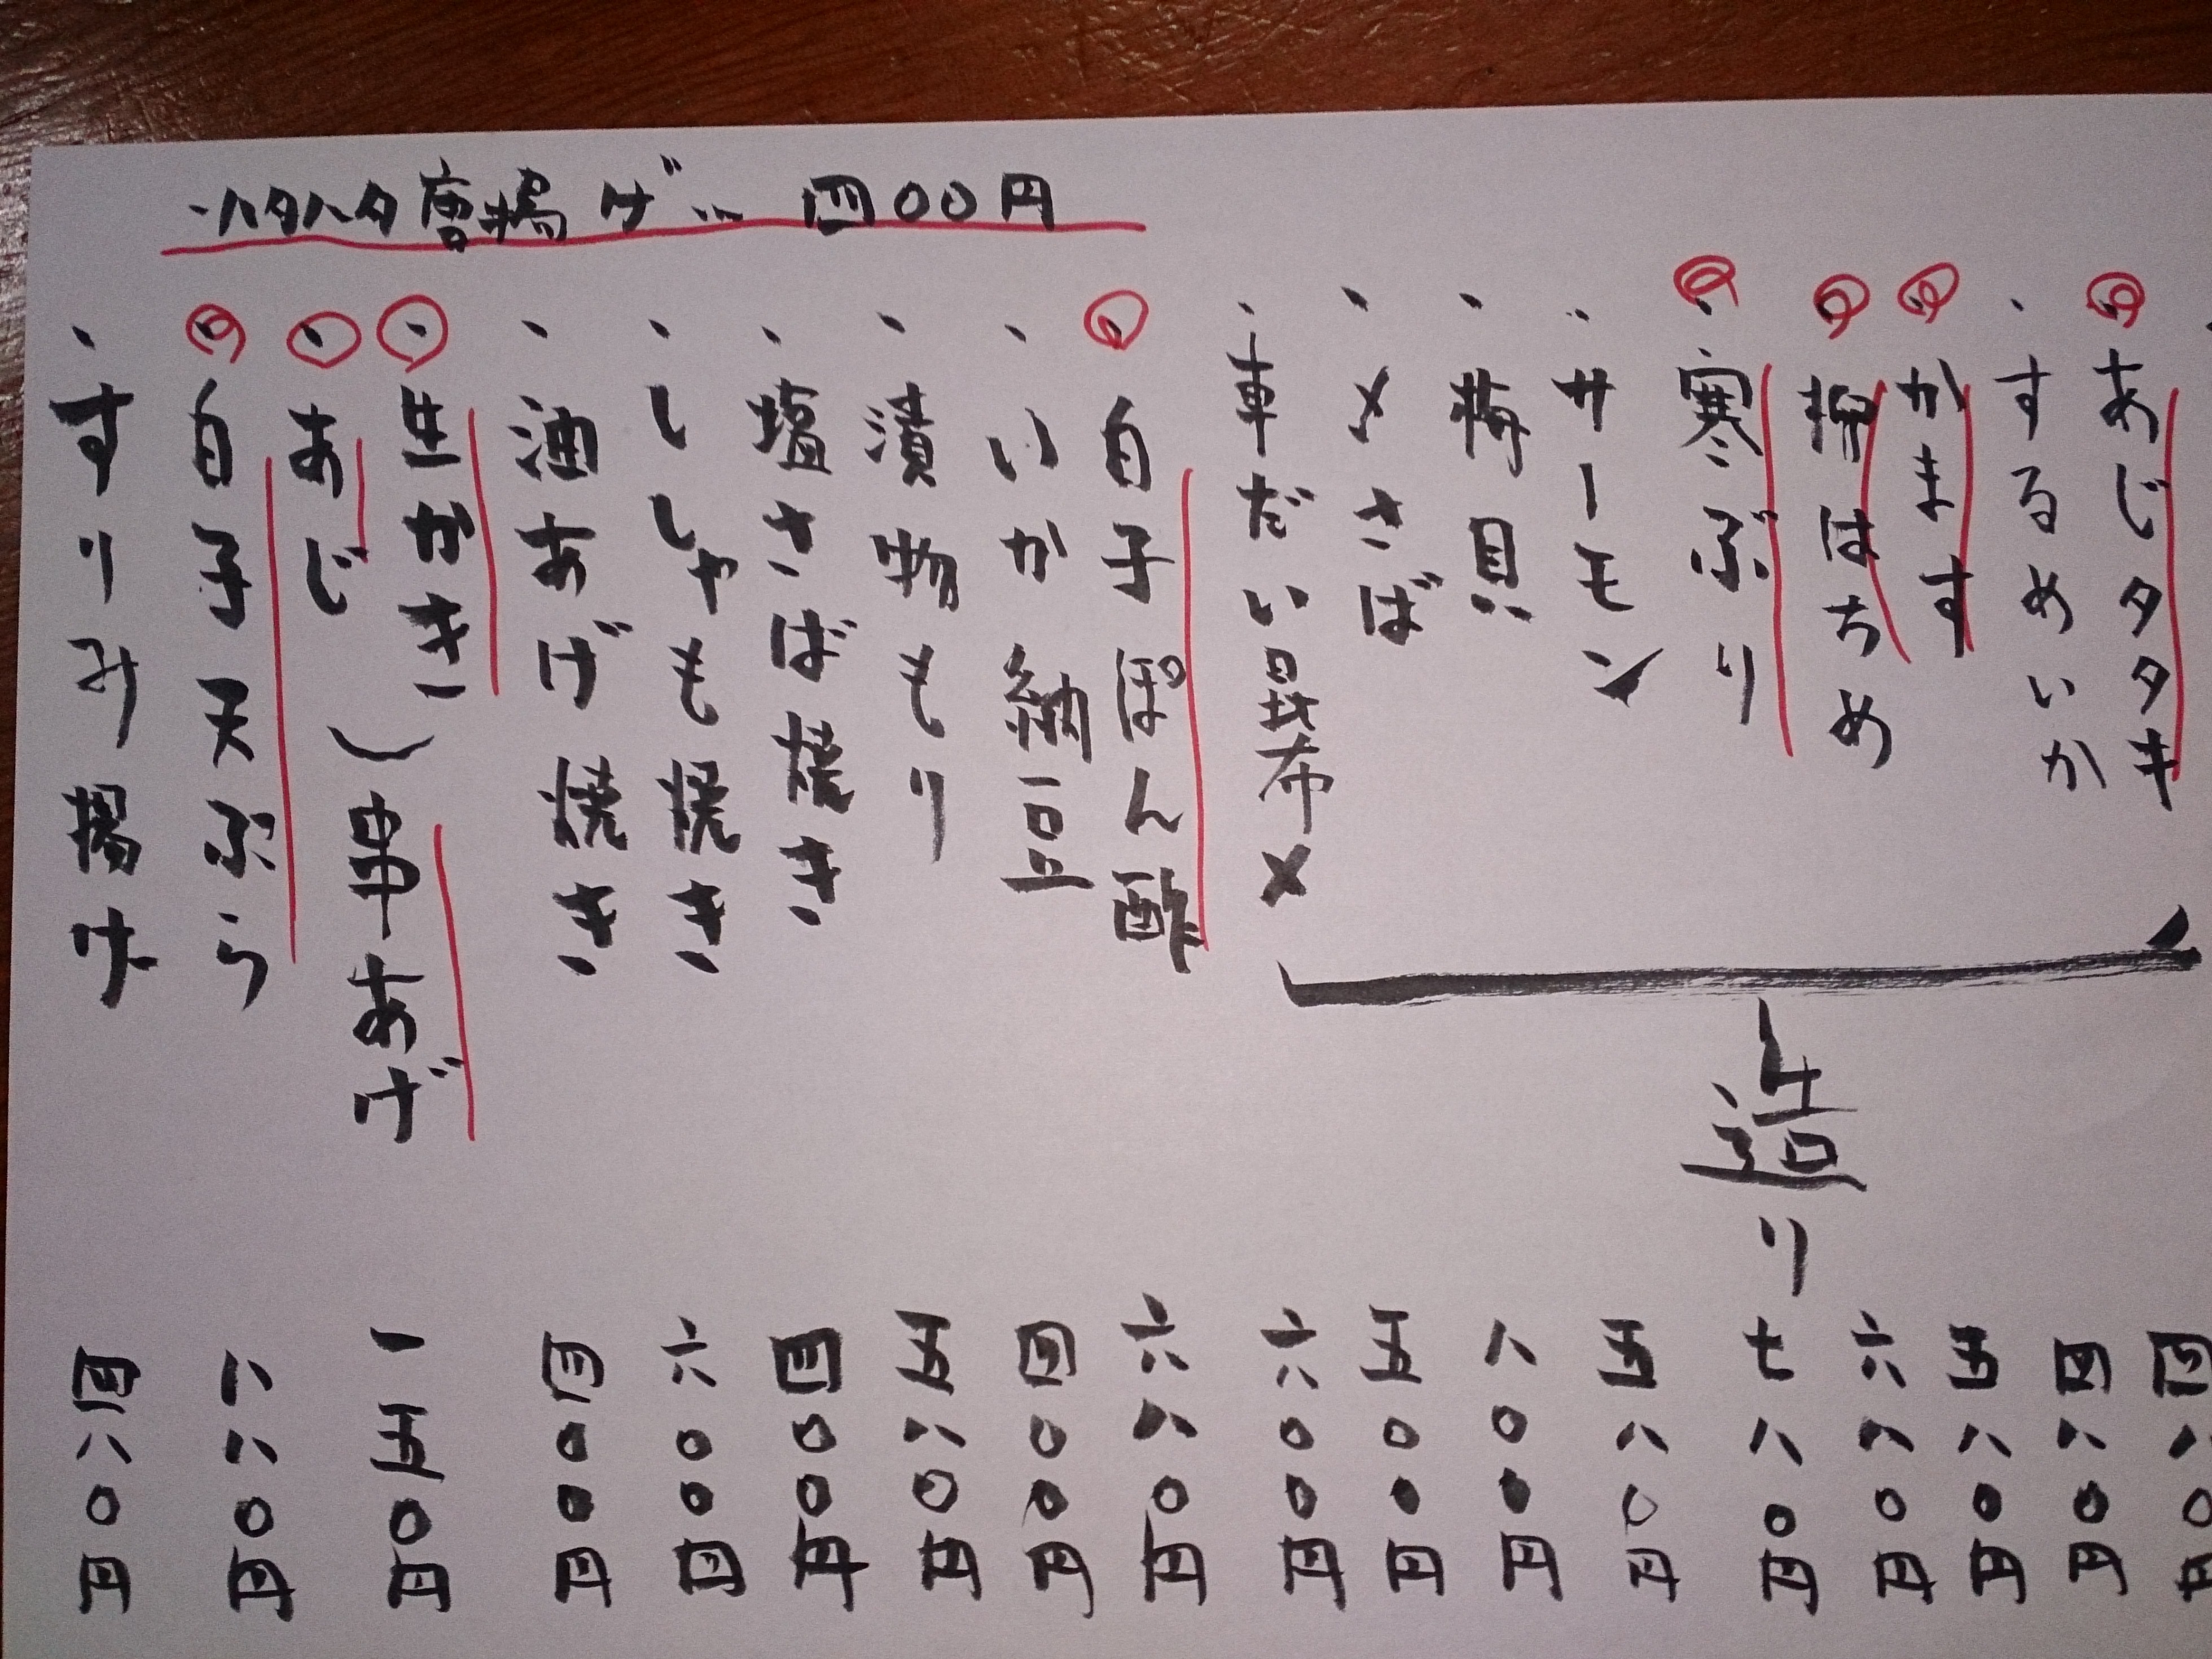 ・ハタハタ唐揚げ… 四〇〇円
・あじタタキ 四八〇円
・するめいか 四八〇円
・かます 五八〇円
・柳はちめ 六八〇円
・寒ぶり 七八〇円
・サーモン 五八〇円
・梅貝 八〇〇円
・〆さば 五〇〇円
・車だい昆布〆 六〇〇円
造り
・白子ぽん酢 六八〇円
・いか納豆 四〇〇円
・漬物もり 五八〇円
・塩さば焼き 四〇〇円
・ししゃも焼き 六〇〇円
・油あげ焼き 四〇〇円
・生かき
・あじ
串あげ 一五〇円
・白子天ぷら 八八〇円
・すりみ揚け 四八〇円